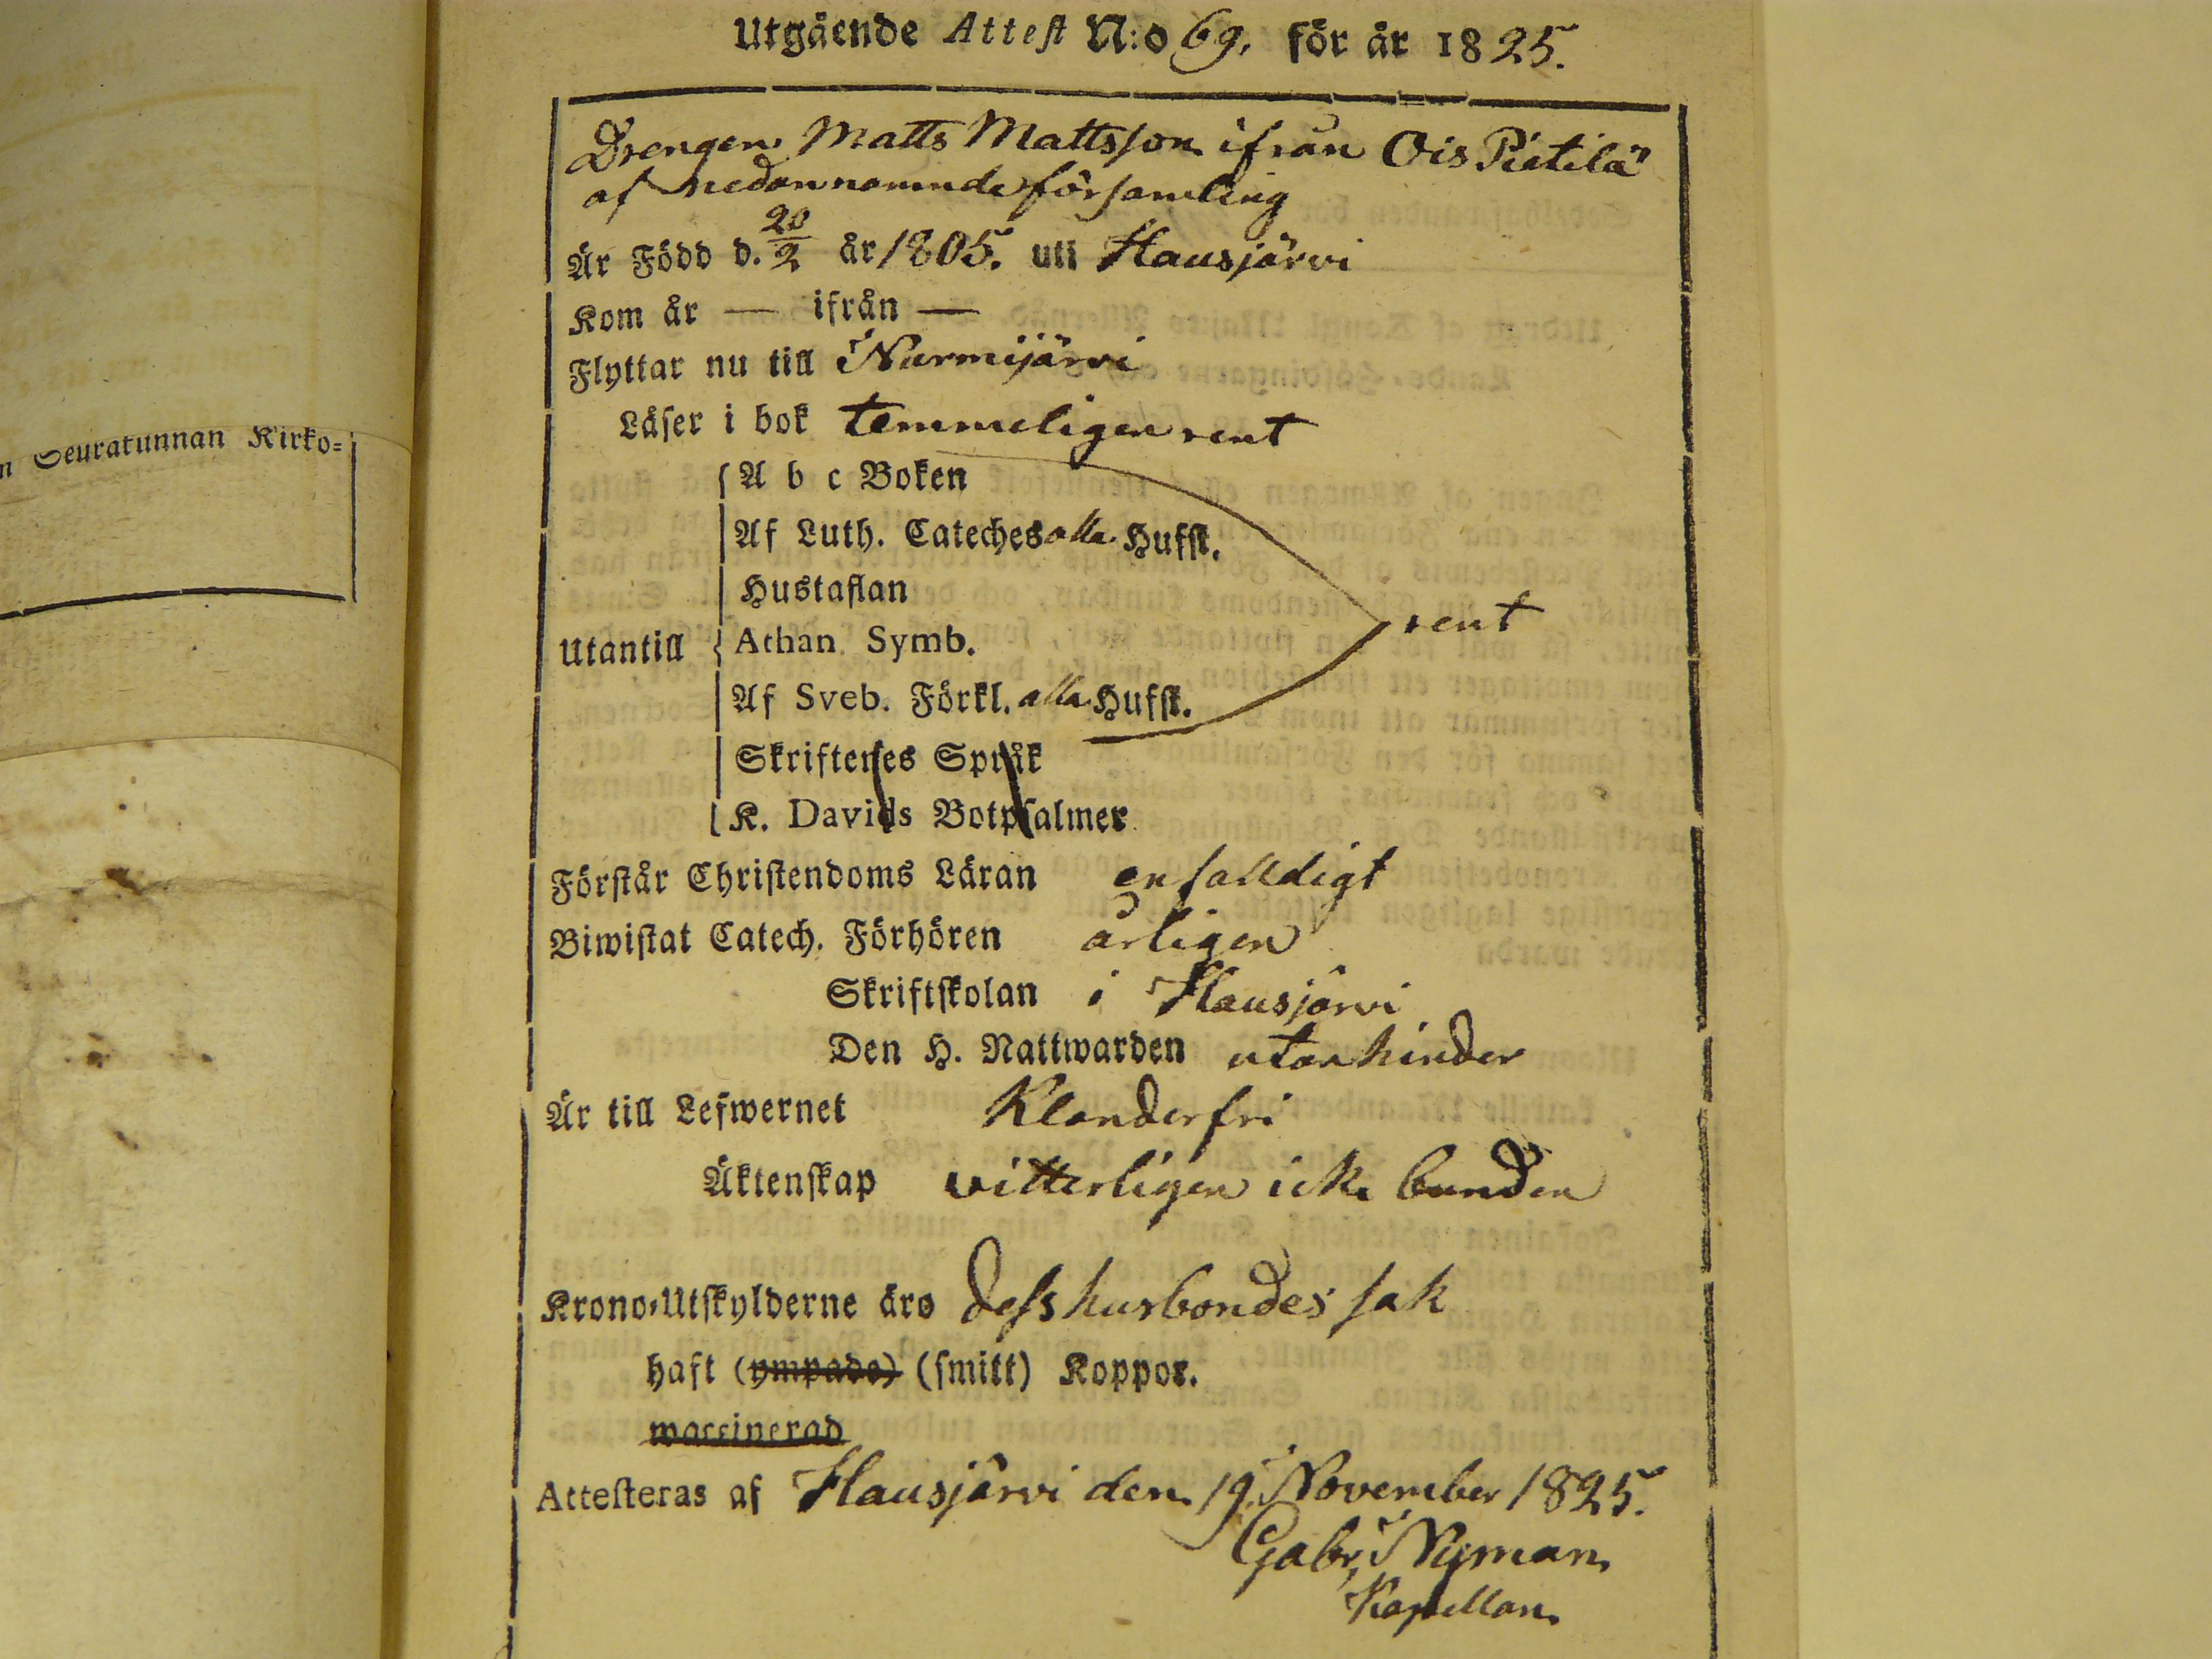 Utgående Attest N:o 69, för år 1825.
Drengen Matts Mattsson ifrån Ois Pietilä
af nedannamnde församling
Är Född d. 20/2 år 1805. uti Hausjärvi
Kom år — ifrån —
Flyttar nu till Nurmijärvi
Läser i bok temmeligen rent
n Seurakunnan Kirko=
A b c Boken
Af Luth. Cateches alla Hufst.
Hustaflan
Utantill Athan. Symb. rent
Af Sveb. Förkl. alla Hufst.
Skriftenes Språk
K. Davids Botpsalmer
Förstår Christendoms Läran enfalldigt
Biwistat Catech. Förhören årligen
Skriftskolan i Hausjärvi
Den H. Nattwarden utan hinder
Är till Lefwernet Klanderfri
Äktenskap vitterligen icke bunden
Krono-Utskylderne äro dess husbondes sak
haft (ympade) (smitt) Koppor.
waccinerad
Attesteras af Hausjärvi den 19 November 1825.
Gabr, Nyman
Kapellan